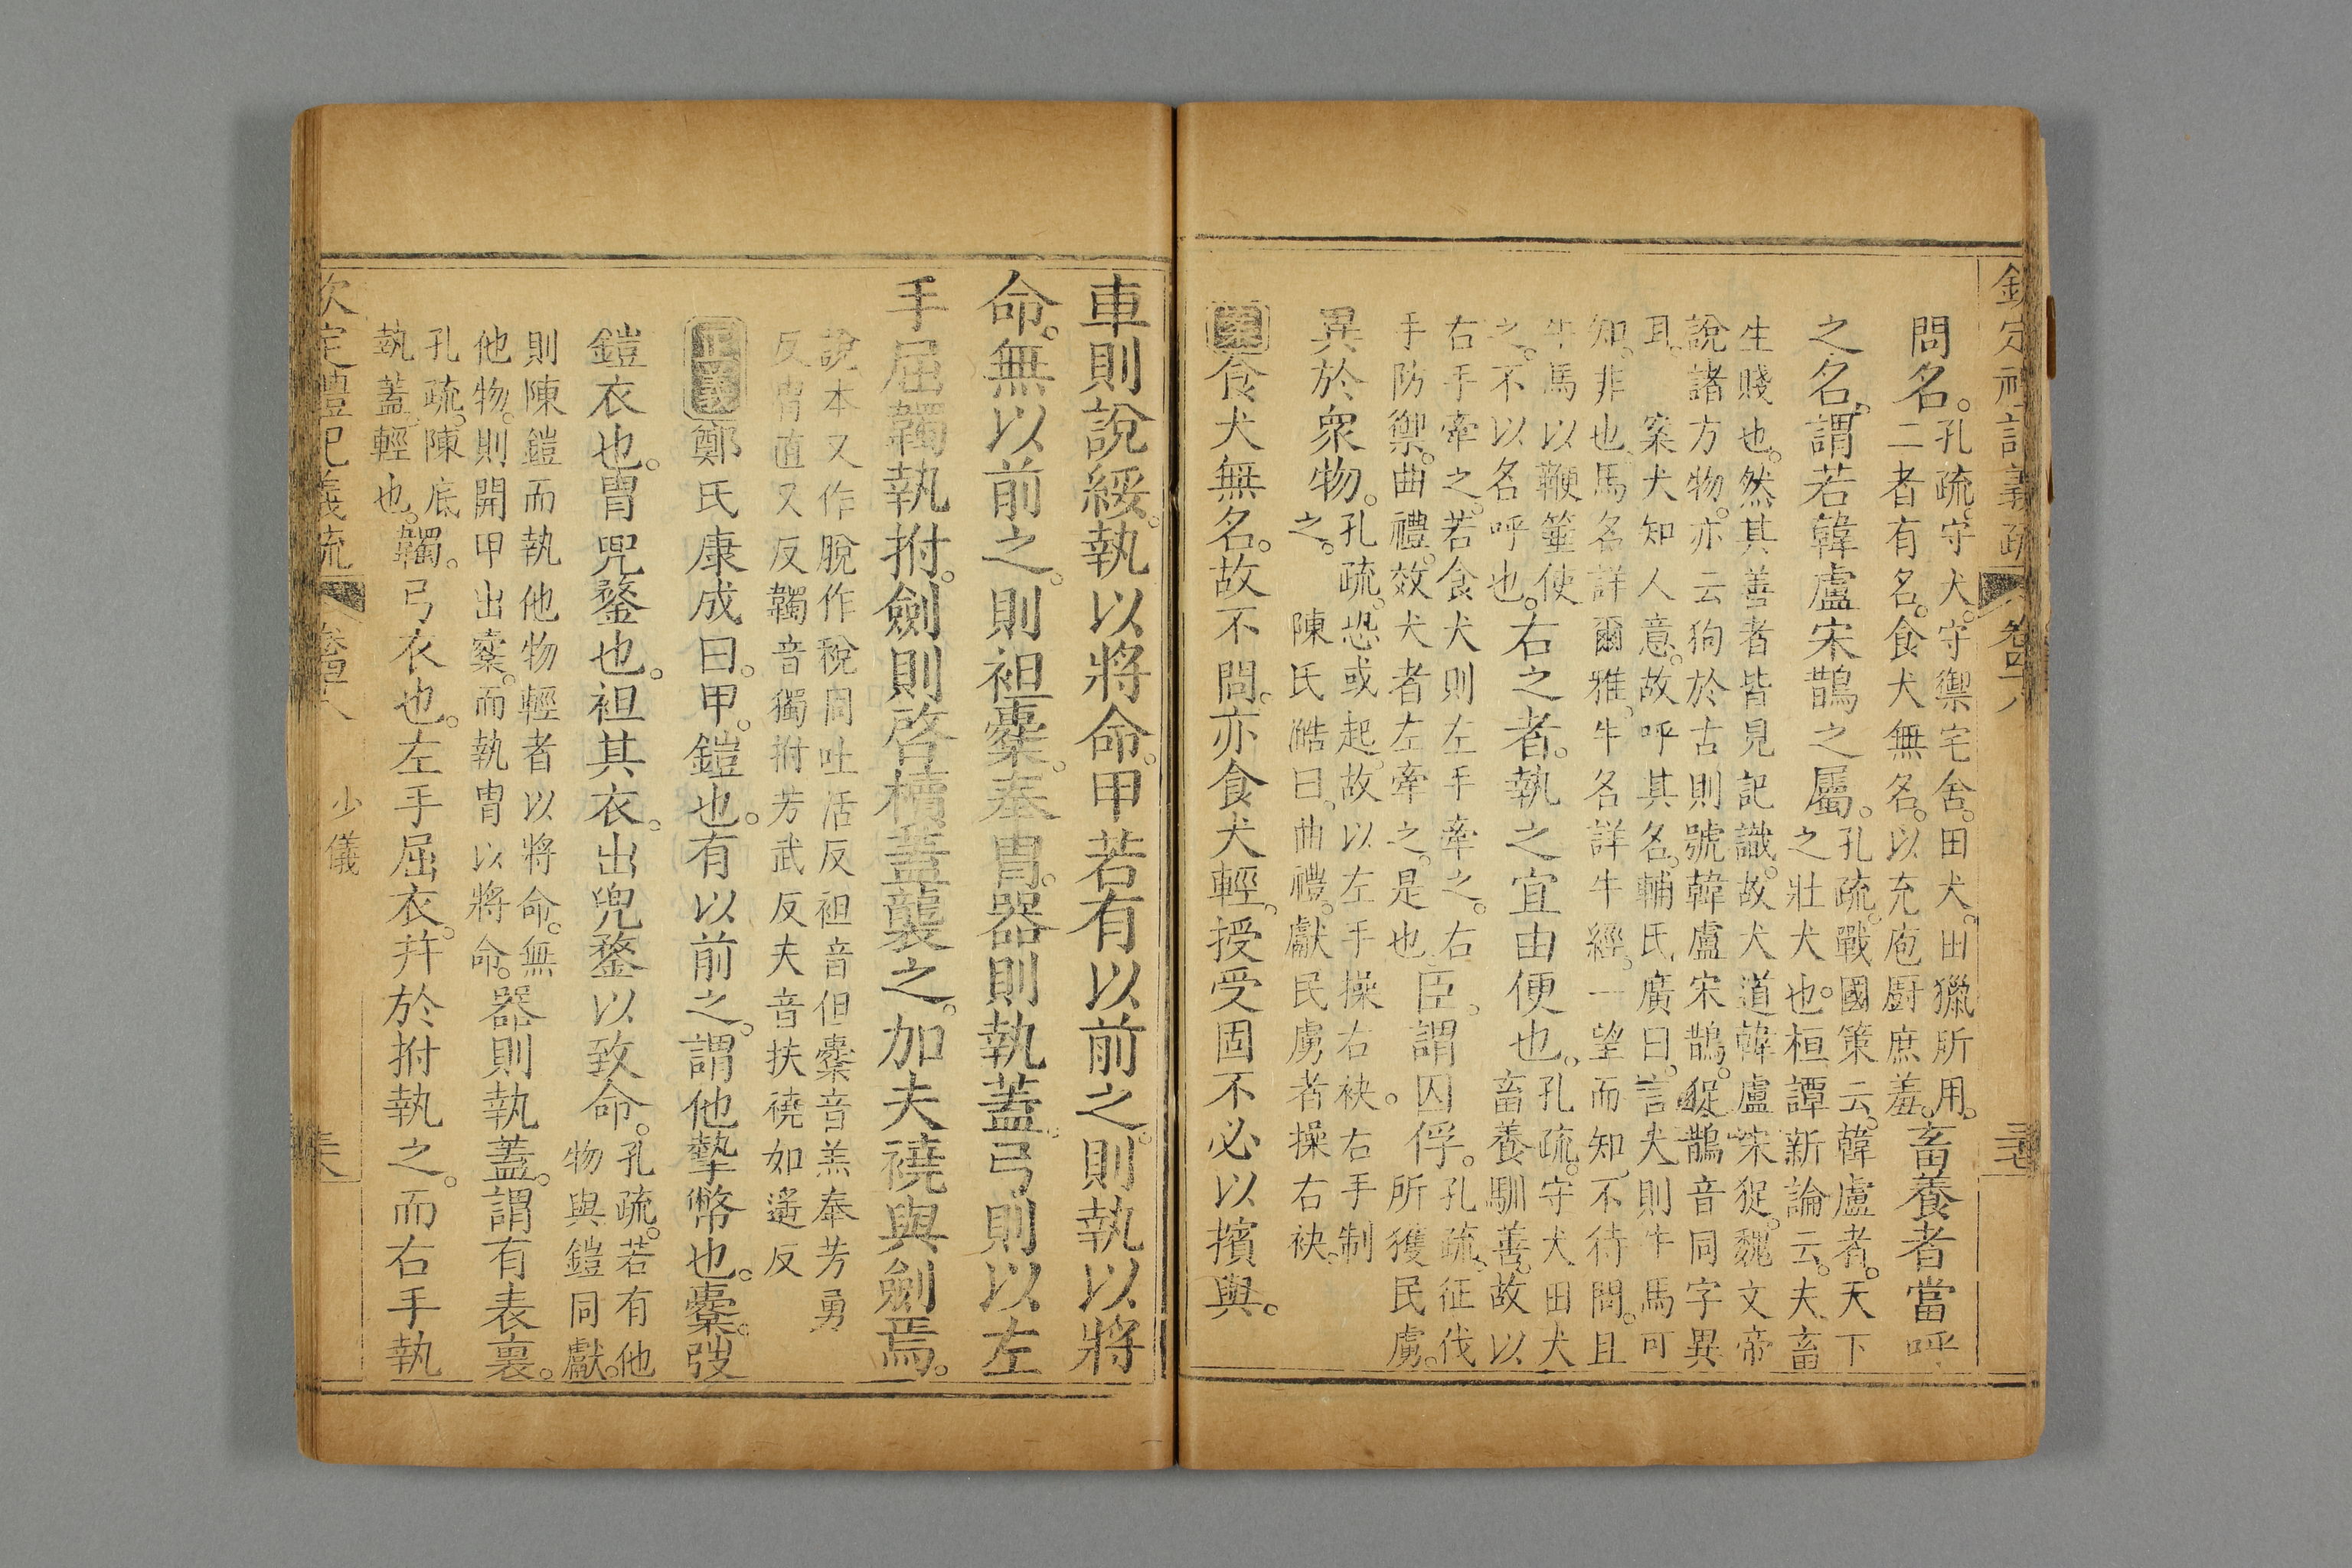 欽定禮記義疏 卷四十八
問名。孔疏。守犬。守禦宅舍。田犬。田獵所用。
二者有名。食犬無名。以充庖厨庶羞。畜養者當呼
之名。謂若韓盧宋鵲之屬。孔疏。戰國策云。韓盧者。天下
之壯犬也。桓譚新論云。夫畜
生賤也。然其善者皆見記識。故犬道韓盧宋㹱。魏文帝
說諸方物。亦云狗於古則號韓盧宋鵲。㹱鵲音同字異
耳。 案犬知人意。故呼其名。輔氏廣曰。言犬則牛馬可
知。非也。馬名詳爾雅。牛名詳牛經。一望而知。不待問。且
牛馬以鞭箠使
之。不以名呼也。右之者。執之宜由便也。孔疏。守犬田犬
畜養馴善。故以
右手牽之。若食犬則左手牽之。右
手防禦。曲禮。效犬者左牽之。是也。臣。謂囚俘。孔疏。征伐
所獲民虜。
異於衆物。孔疏。恐或起。故以左手操右袂。右手制
之。 陳氏澔曰。曲禮。獻民虜者操右袂。
案食犬無名。故不問。亦食犬輕。授受固不必以擯與。
車則說綏。執以將命。甲若有以前之。則執以將
命。無以前之。則袒櫜。奉胄。器則執蓋。弓則以左
手屈韣執拊。劍則啓櫝蓋襲之。加夫襓與劍焉。
說本又作脫作稅同吐活反袒音但櫜音羔奉芳勇
反胄直又反韣音獨拊芳武反夫音扶襓如遙反
正義鄭氏康成曰。甲。鎧也。有以前之。謂他摯幣也。櫜。弢
鎧衣也。胄兜鍪也。袒其衣。出兜鍪以致命。孔疏。若有他
物與鎧同獻。
則陳鎧而執他物輕者以將命。無
他物。則開甲出櫜。而執胄以將命。器則執蓋。謂有表裏。
孔疏。陳底。
執蓋。輕也。韣。弓衣也。左手屈衣。幷於拊執之。而右手執
欽定禮記義疏 卷四十八 少儀